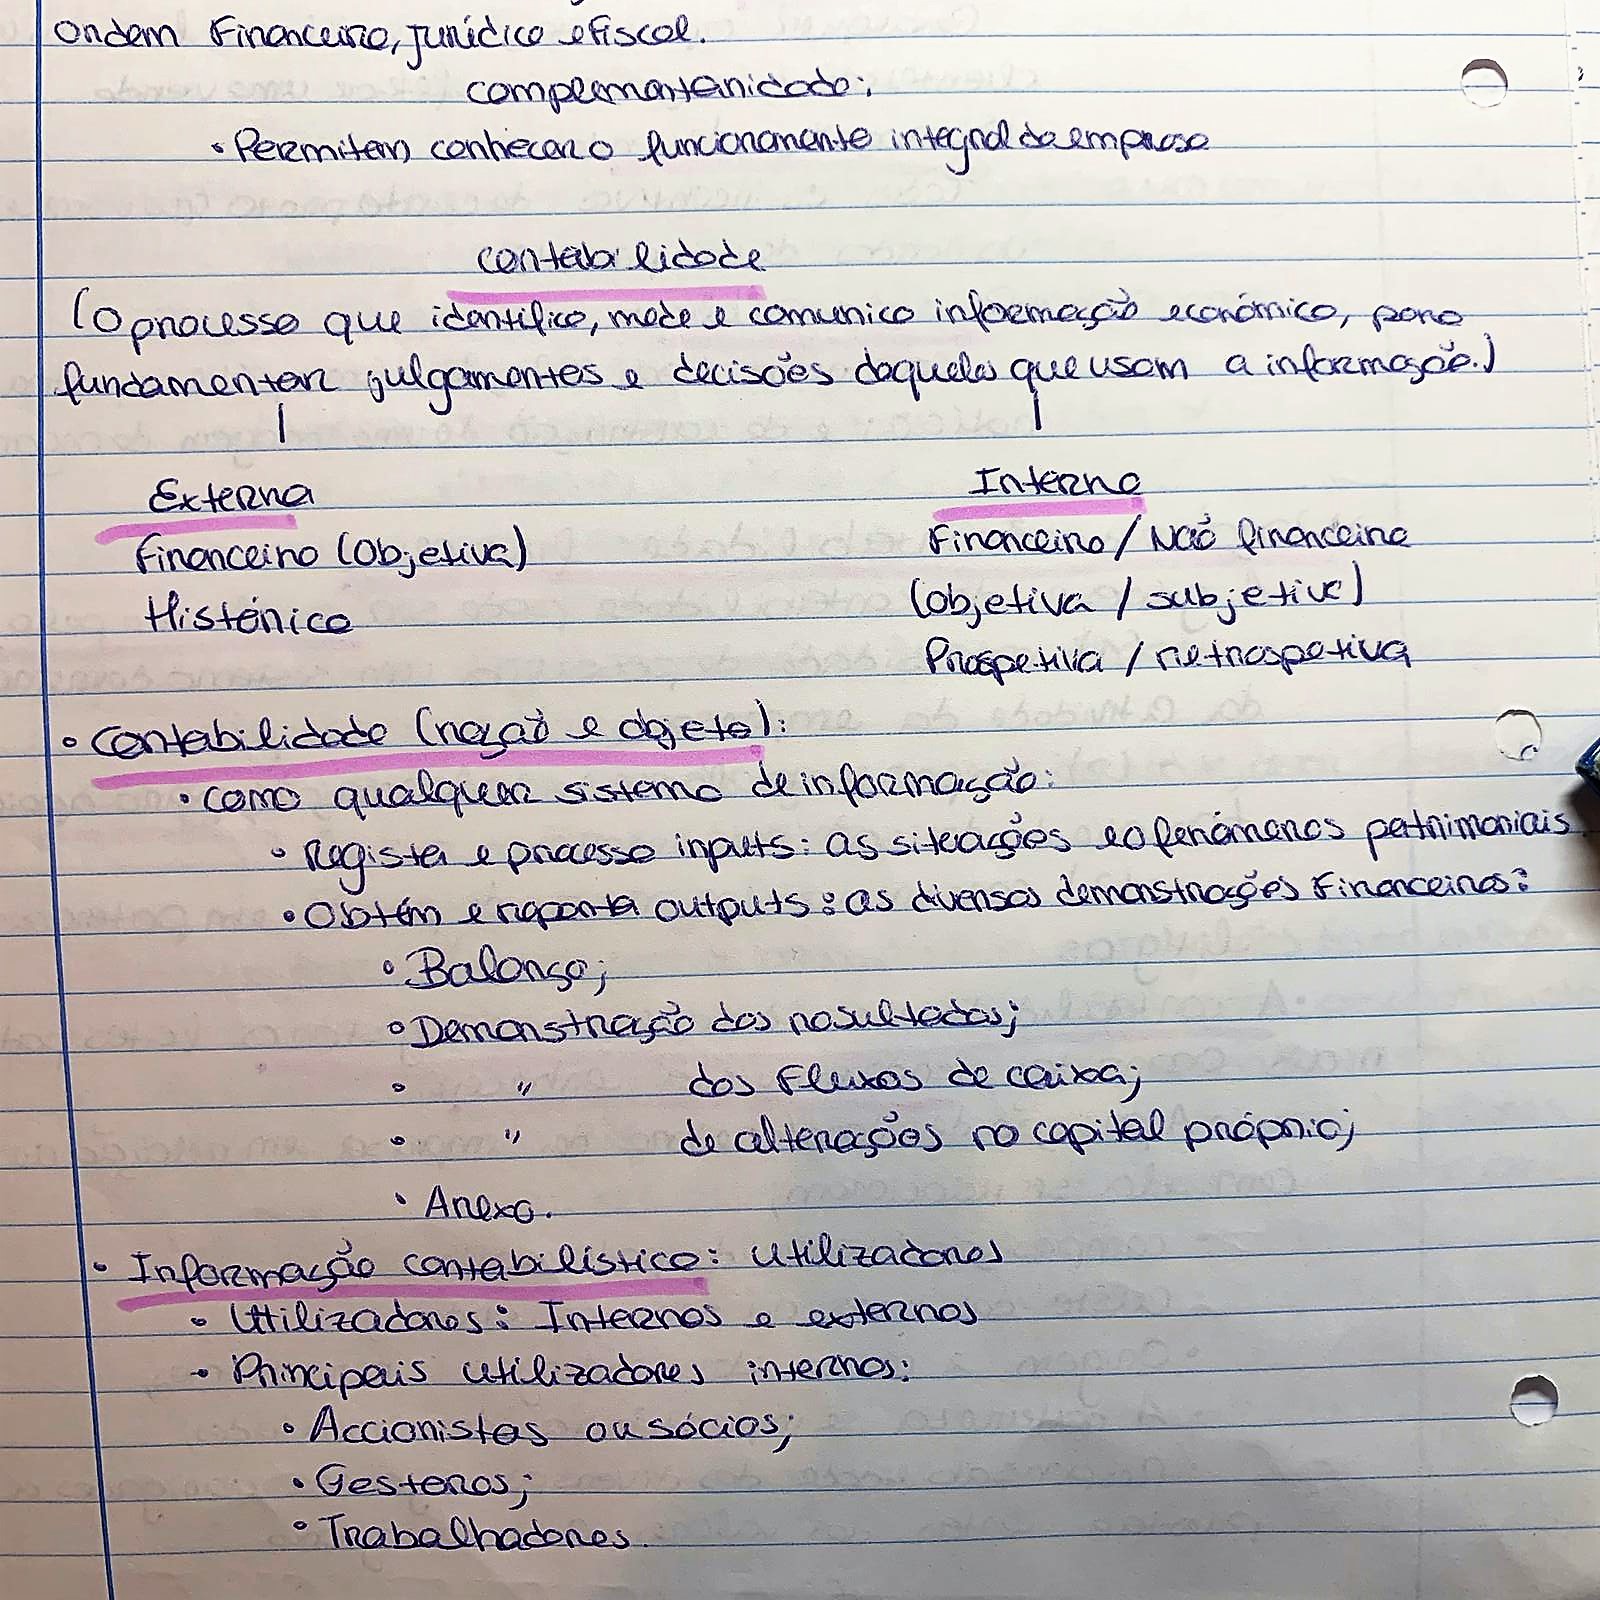 ordem Financeira, jurídica e fiscal.
complementaridade:
• Permitem conhecer o funcionamento integral da empresa
Contabilidade
(O processo que identifica, mede e comunica informação económica, para
fundamentar julgamentos e decisões daqueles que usam a informação.)
Externa
Interna
Financeira (Objetiva)
Financeira / Não financeira
Histórica
(objetiva / subjetiva)
Prospetiva / retrospetiva
• Contabilidade (noção e objeto):
• Como qualquer sistema de informação:
• Regista e processa inputs: as situações e o fenómenos patrimoniais
• Obtém e reporta outputs: as diversas demonstrações Financeiras:
• Balanço;
• Demonstração dos resultados;
• " dos Fluxos de caixa;
• " de alterações no capital próprio;
• Anexo.
• Informação contabilística: Utilizadores
• Utilizadores: Internos e externos
• Principais utilizadores internos:
• Accionistas ou sócios;
• Gestores;
• Trabalhadores.